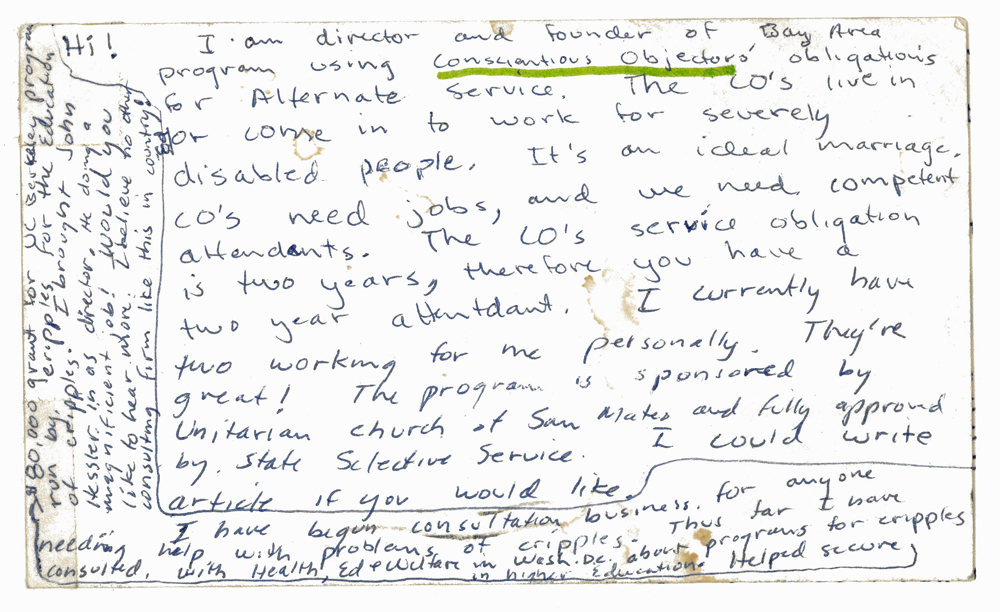 Hi!
I am director and founder of Bay Area
program using Consciantious Objectors' obligations
for Alternate Service. The CO's live in
or come in to work for severely
disabled people. It's an ideal marriage.
CO's need jobs, and we need competent
attendants. The CO's service obligation
is two years, therefore you have a
two year attentdant. I currently have
two working for me personally. They're
great! The program is sponsored by
Unitarian church of San Mateo and fully approved
by State Selective Service. I could write
article if you would like.
I have begun consultation business for anyone
needing help with problems of cripples. Thus far I have
consulted with Health, Ed & Welfare in Wash. DC. about programs for cripples
in higher Education. Helped secure
$80,000 grant for UC Berkeley program
run by cripples for the Education
of cripples. I brought John
Hessler in as director. He doing a
magnificient job! Would you
like to hear more. I believe no other
consulting firm like this in country!